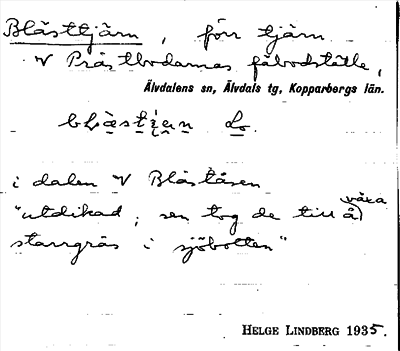 Blästtjärn, förr tjärn
V Prästbodarnas fäbodställe,
Älvdalens sn, Älvdals tg, Kopparbergs län.
i dalen V Bläståsen
"utdikad, sen tog de till å växa
starrgräs i sjöbotten"
HELGE LINDBERG 1935.